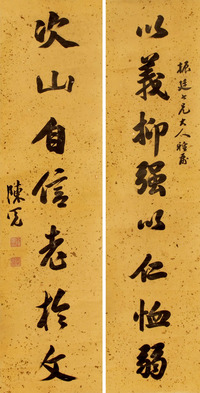 振廷七兄大人雅屬
以義抑强以仁恤弱
次山自信老於文
陳冕